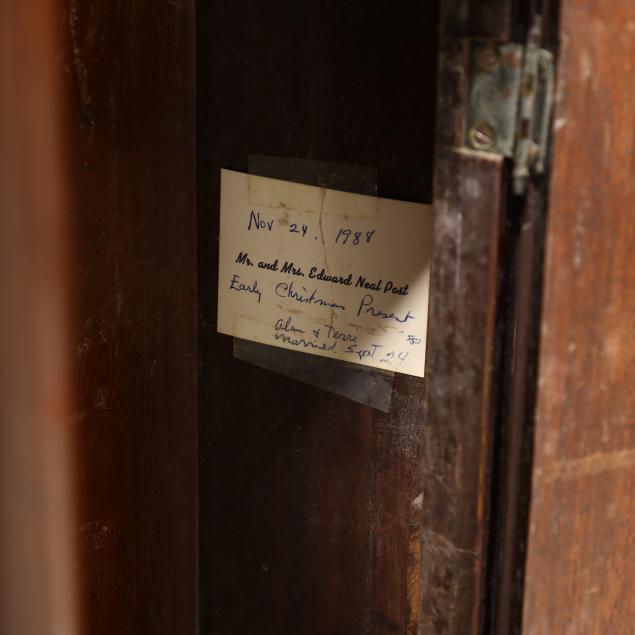 Nov 24, 1988
Mr. and Mrs. Edward Neal Post
Early Christmas Present
Alan & Terri
married Sept 24